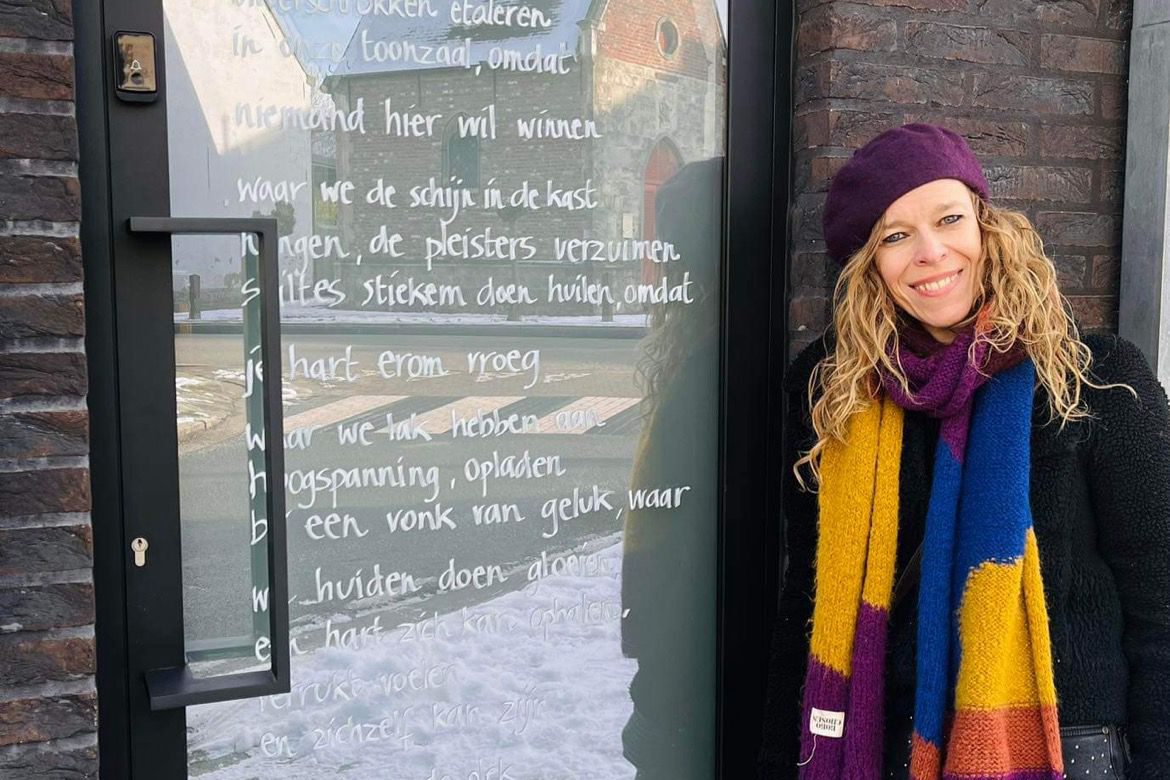 etaleren
in onze toonzaal, omdat
niemand hier wil winnen
waar we de schijn in de kast
hangen, de pleisters verzuimen
stiekem doen huilen, omdat
je hart erom vroeg
waar we lak hebben aan
hoogspanning, opladen
een vonk van geluk, waar
huiden doen gloeien
een hart zich kan ophalen,
verrukt voelen
en zichzelf kan zijn